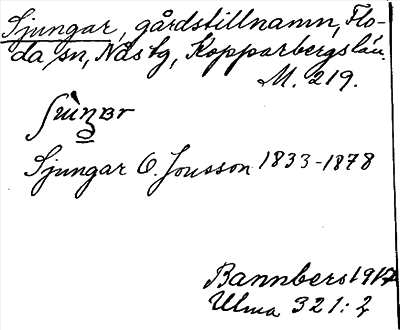 Sjungar, gårdstillnamn, Flo-
da sn, Näs tg, Kopparbergs län.
M. 219.
Sjungar O. Jonsson 1833-1878
Bannbers 1917
Ulma 321:2